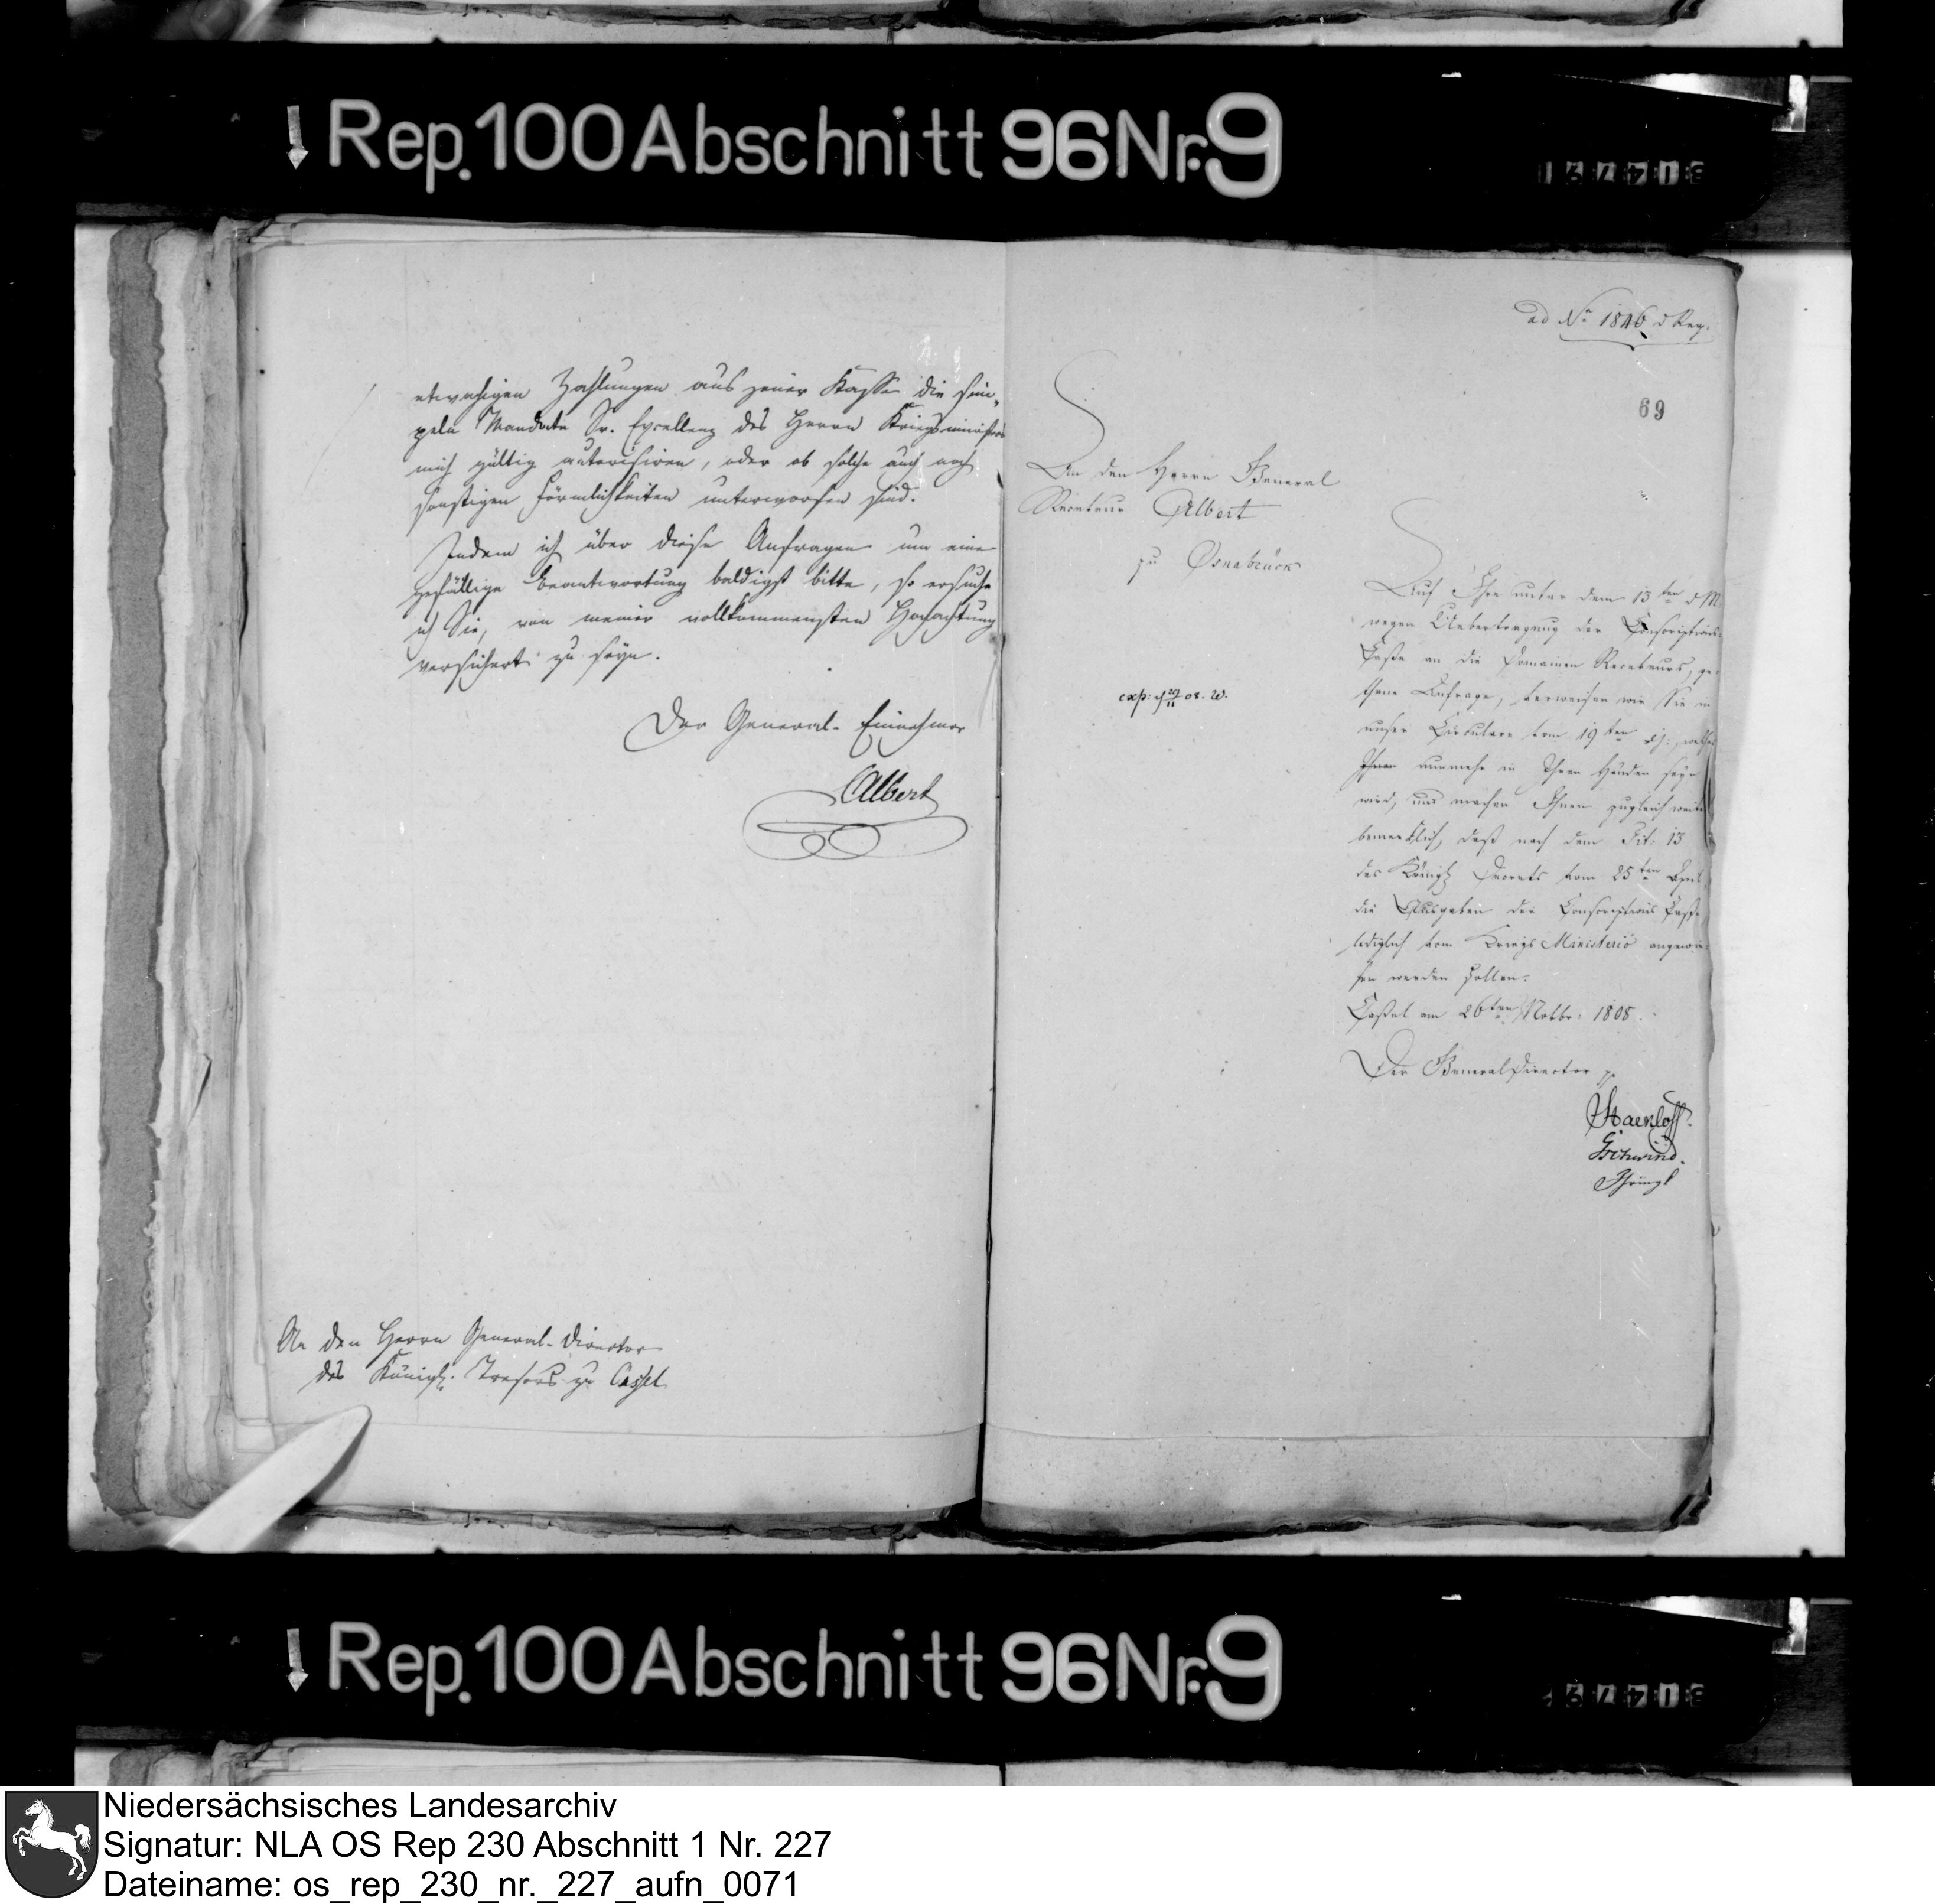 Rep. 100 Abschnitt 96 Nr. 9
etwahigen Zahlungen aus jener Kasse die sim-
peln Mandate Sr. Excellenz des Herrn Kriegsministers
mich gültig autorisiren, oder ob solche auch noch
sonstigen Förmlichkeiten unterworfen sind.
Indem ich über diese Anfragen um eine
gefällige Beantwortung baldigst bitte, so ersuche
ich Sie, von meiner vollkommensten Hochachtung
versichert zu seyn.
Der General-Einnehmer
Albert
An den Herrn General-Director
des Königl. Tresors zu Cassel
ad No 1846 d Reg.
69
An den Herrn General
Receveur Albert
zu Osnabrück
exp: 29/11 08. W.
Auf Ihre unter dem 13ten d M
wegen Uebertragung der Conscriptions-
Casse an die Domainen Receveurs, ge-
thane Anfrage, verweisen wir Sie in
unser Circulare vom 19ten
Ihnen nunmehr in Ihren Händen seyn
wird, und machen Ihnen zugleich
bemerklich, daß nach dem Tit: 13
des Königl Decrets vom 25ten April
die Ausgaben der Conscriptions Casse
lediglich vom Kriegs Ministerio angewie-
sen werden sollen.
Cassel am 26ten Novbr: 1808.
Der General Director
Gschwind.
Rep. 100 Abschnitt 96 Nr. 9
Niedersächsisches Landesarchiv
Signatur: NLA OS Rep 230 Abschnitt 1 Nr. 227
Dateiname: os_rep_230_nr._227_aufn_0071